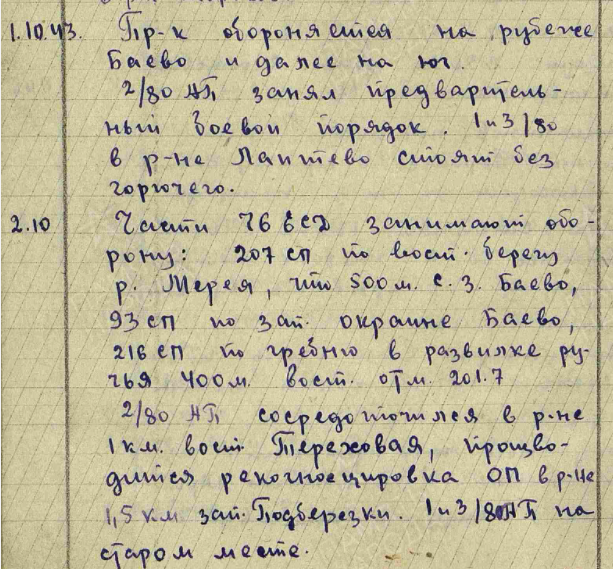 1.10.43. Пр-к обороняется на рубеже
Баево и далее на юг
2/80 АП занял предваритель-
ный боевой порядок. 1 и 3/80
в р-не Лаптево стоят без
горючего.
2.10 Части 76 ЕСД занимают обо-
рону: 207 СП по вост. берегу
р. Мерея, что 500 м. С.З. Баево,
93 СП по зап. окраине Баево,
216 СП по гребню в развилке ру-
чья 400 м. вост. отм. 201.7
2/80 АП сосредоточился в р-не
1 км. вост Тереховая, произво-
дится рекогносцировка ОП в р-не
1,5 км зап. Подберезки. 1 и 3/80 АП на
старом месте.